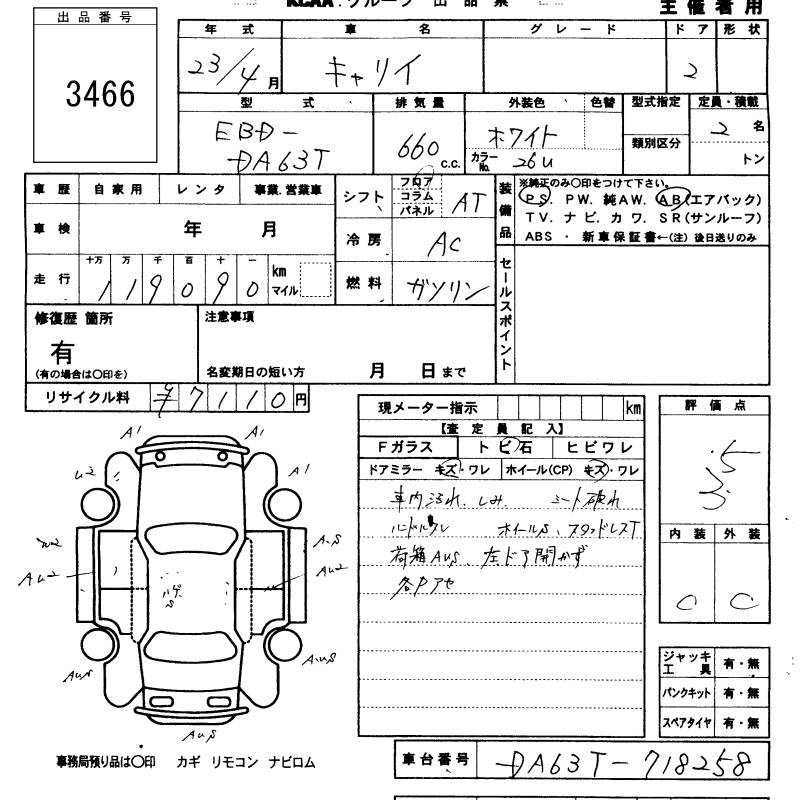 KCAA グループ 出品票 主催者用
出品番号
3466
年式 車名 グレード ドア 形状
23/4月 キャリイ 2
型式 排気量 外装色 色替 型式指定 定員・積載
EBD-
DA63T 660 C.C. ホワイト カラーNo. 26U 類別区分 2名 トン
車歴 自家用 レンタ 事業.営業車 シフト フロア コラム パネル AT
装備品 ※純正のみ○印をつけて下さい。
PS. PW. 純AW. AB(エアバック)
TV. ナビ. カワ. SR(サンルーフ)
ABS ・ 新車保証書←(注) 後日送りのみ
車検 年 月 冷房 AC
走行 十万 万 千 百 十 一 km マイル 燃料 ガソリン
119090
セールスポイント
修復歴 箇所 注意事項
有
(有の場合は○印を) 名変期日の短い方 月 日まで
リサイクル料 ¥7110円
現メーター指示 km 評価点
【査定員記入】
Fガラス トビ石 ヒビワレ
ドアミラー キズ・ワレ ホイール(CP) キズ・ワレ
車内汚れ、しみ シート破れ
ハンドルスレ ホイールS、スタッドレスT
荷箱AUS、左ドア開かず
内装 外装
C C
A1 A1
U2 A1
A.S
AU2 AU2
S
A.US
AUS
ジャッキ工具 有・無
パンクキット 有・無
スペアタイヤ 有・無
事務局預り品は○印 カギ リモコン ナビロム
車台番号 DA63T-718258